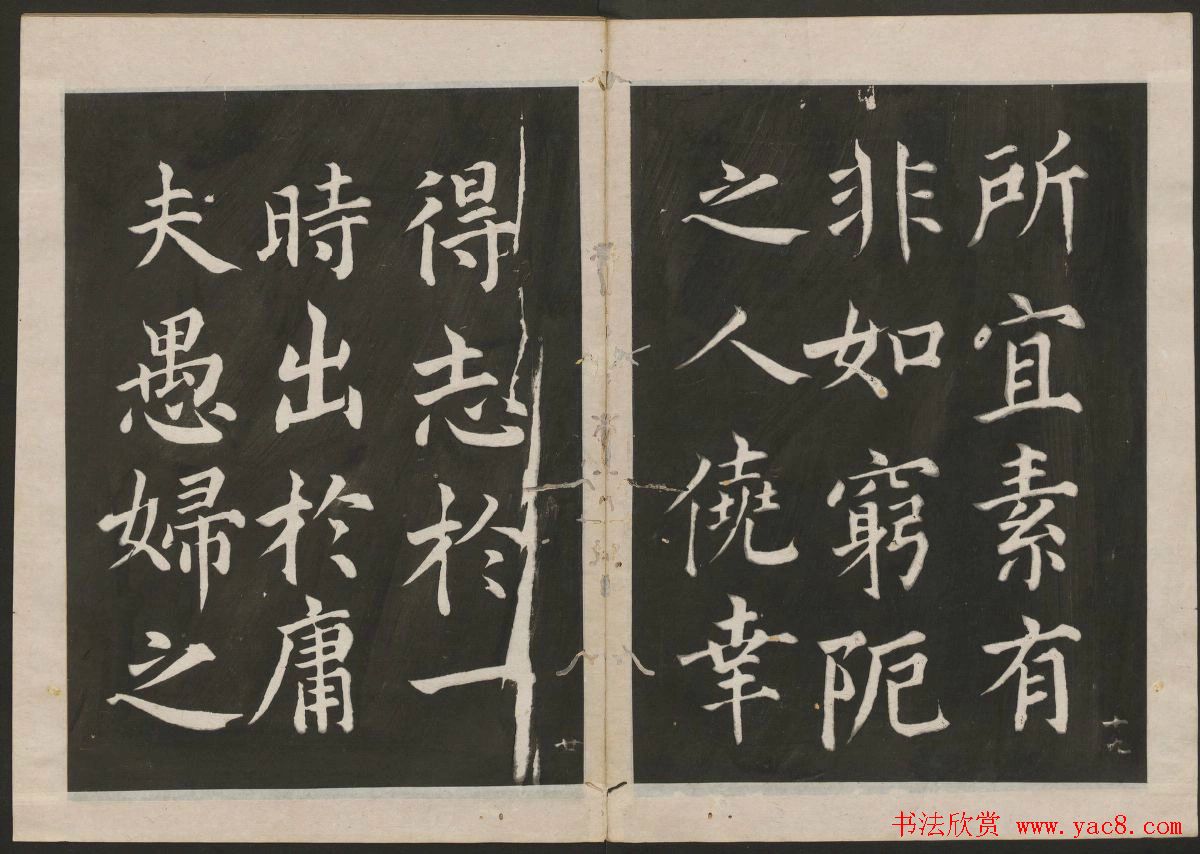 所宜素有
非如窮阨
之人僥幸
十九
得志於一
時出於庸
夫愚婦之
廿
书法欣赏 www.yac8.com